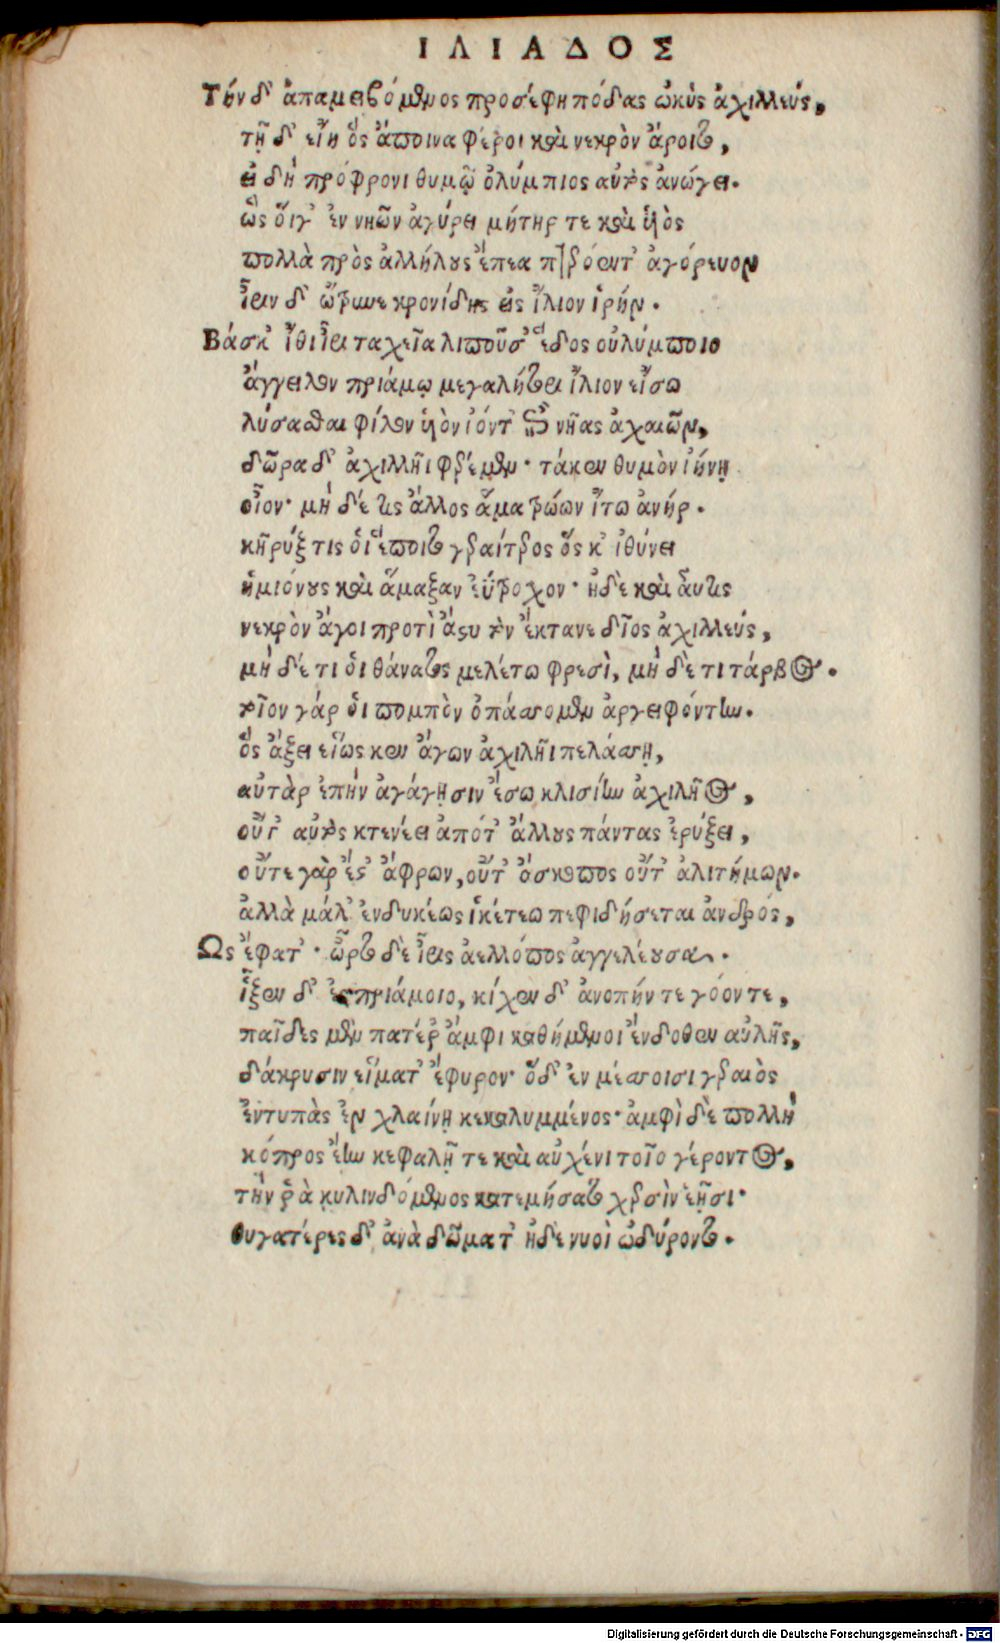 ΙΛΙΑΔΟΣ
Τήν δ' ἀπαμειβόμενος προσέφη πόδας ὠκὺς ἀχιλλεύς,
τῇ δ' εἴη ὃς ἄποινα φέροι καὶ νεκρὸν ἄροιτο,
εἰ δὴ πρόφρονι θυμῷ ὀλύμπιος αὐτὸς ἀνώγει.
ὣς οἵγ' ἐν νηῶν ἀγύρει μήτηρ τε καὶ ὑιὸς
πολλὰ πρὸς ἀλλήλους ἔπεα πτερόεντ' ἀγόρευον
ἶριν δ' ὤτρυνε κρονίδης εἰς ἴλιον ἱρήν.
Βάσκ' ἴθι ἶρι ταχεῖα λιποῦσ' ἕδος οὐλύμποιο
ἄγγειλον πριάμῳ μεγαλήτορι ἴλιον εἴσω
λύσασθαι φίλον ὑιὸν ἰόντ' ἐπὶ νῆας ἀχαιῶν,
δῶρα δ' ἀχιλλῆι φερέμεν· τάκεν θυμὸν ἰήνῃ
οἶον· μὴ δέ τις ἄλλος ἅμα τρώων ἴτω ἀνήρ.
κῆρύξ τις οἱ ἕποιτο γεραίτερος ὅς κ' ἰθύνει
ἡμιόνους καὶ ἅμαξαν ἐΰτροχον· ἠδὲ καὶ αὖτις
νεκρὸν ἄγοι προτὶ ἄστυ τὸν ἔκτανε δῖος ἀχιλλεύς,
μὴ δέ τι οἱ θάνατος μελέτω φρεσὶ, μὴ δὲ τι τάρβος.
τοῖον γάρ οἱ πομπὸν ὀπάσσομεν ἀργειφόντην.
ὃς ἄξει εἵως κεν ἄγων ἀχιλῆι πελάσσῃ,
αὐτὰρ ἐπὴν ἀγάγῃσιν ἔσω κλισίην ἀχιλῆος,
οὔτ' αὐτὸς κτενέει ἀπότ' ἄλλους πάντας ἐρύξει,
οὔτε γὰρ ἔς' ἄφρων, οὔτ' ἄσκοπος οὔτ' ἀλιτήμων.
ἀλλὰ μάλ' ἐνδυκέως ἱκέτεω πεφιδήσεται ἀνδρός,
Ως ἔφατ'· ὦρτο δὲ ἶρις ἀελλόπος ἀγγελέουσα.
ἷξεν δ' ἐς πριάμοιο, κίχεν δ' ἀνοπήν τε γόον τε,
παῖδες μὲν πατέρ' ἀμφι καθήμενοι ἔνδοθεν αὐλῆς,
δάκρυσιν εἵματ' ἔφυρον· ὅδ' ἐν μέσσοισι γεραιὸς
ἐντυπὰς ἐν χλαίνῃ κεκαλυμμένος· ἀμφὶ δὲ πολλὴ
κόπρος ἔην κεφαλῇ τε καὶ αὐχένι τοῖο γέροντος,
τὴν ῥὰ κυλινδόμενος κατεμήσατο χερσὶν ἑῇσι·
θυγατέρες δ' ἀνὰ δῶματ' ἠδὲ νυοὶ ὠδύροντο.
Digitalisierung gefördert durch die Deutsche Forschungsgemeinschaft - DFG